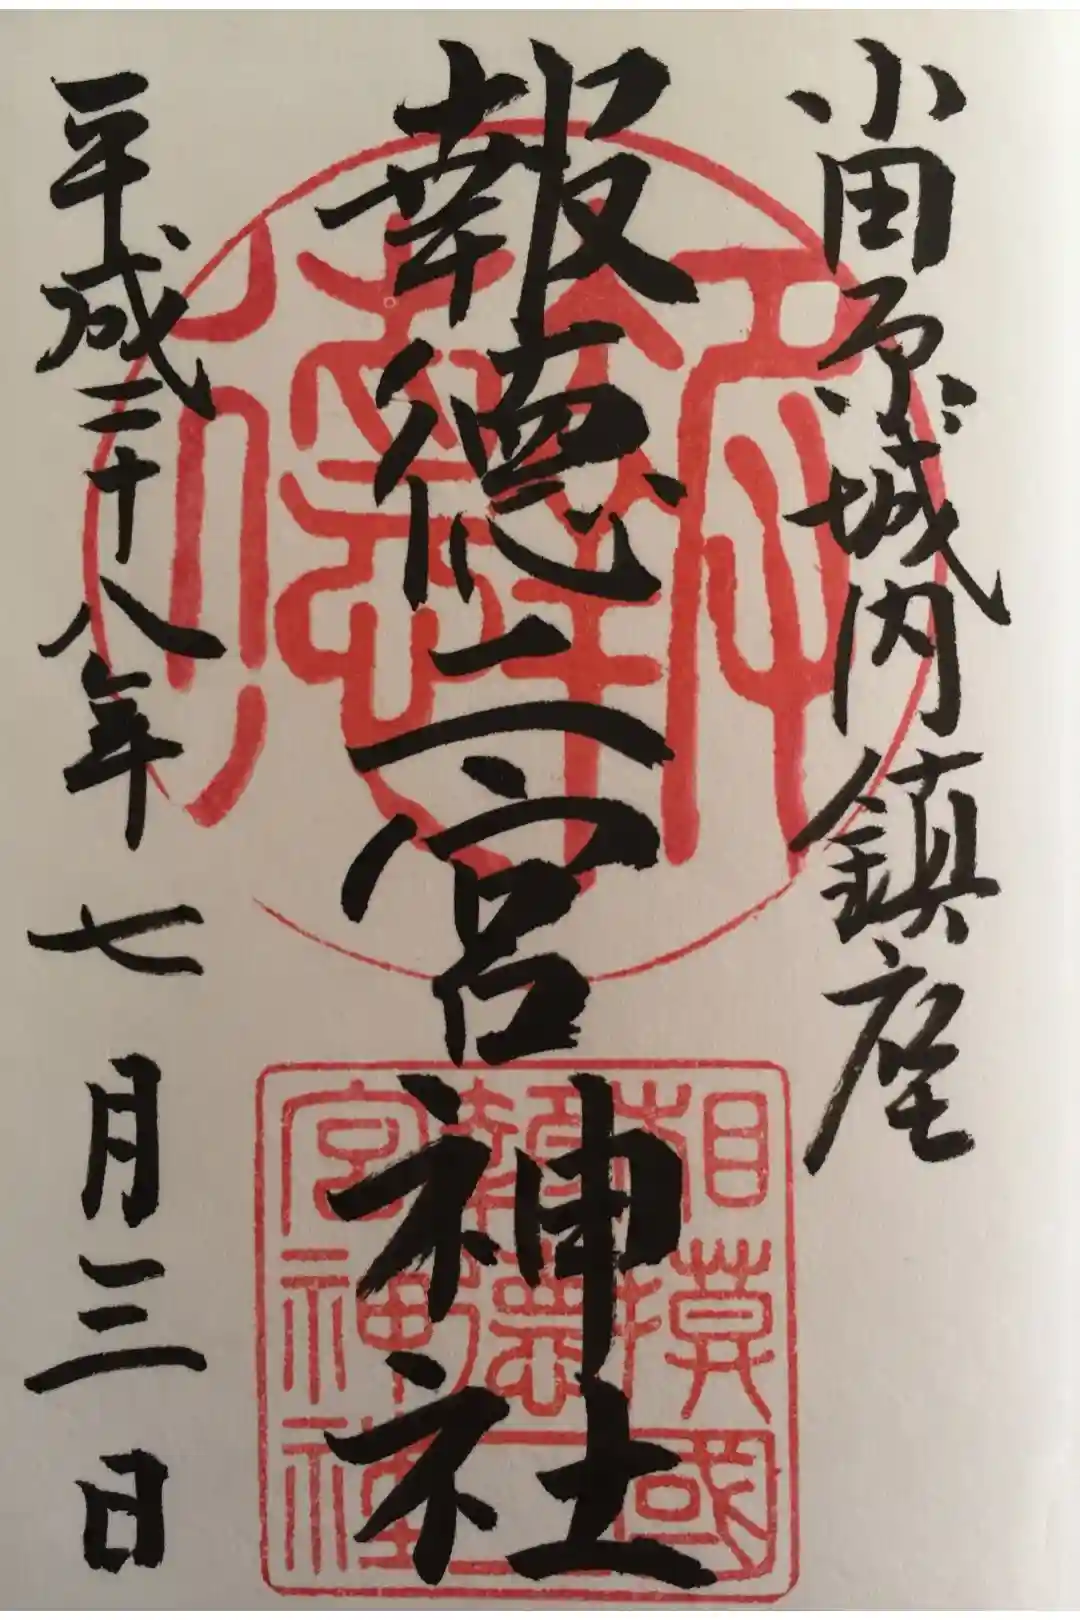 小田原城内鎮座
報徳二宮神社
平成二十八年七月三日
報徳
相模國
報德二
宮神社